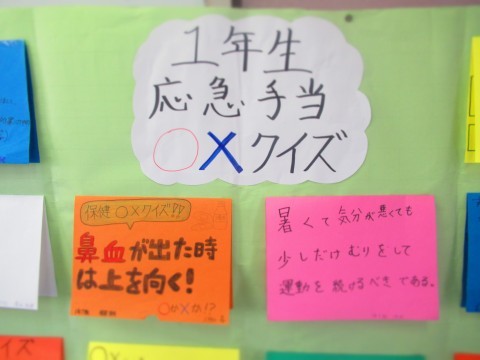 1年生
応急手当
○×クイズ
保健○×クイズ!?
鼻血が出た時
は上を向く!
○か×か!?
暑くて気分が悪くても
少しだけむりをして
運動を続けるべきである。
イズ